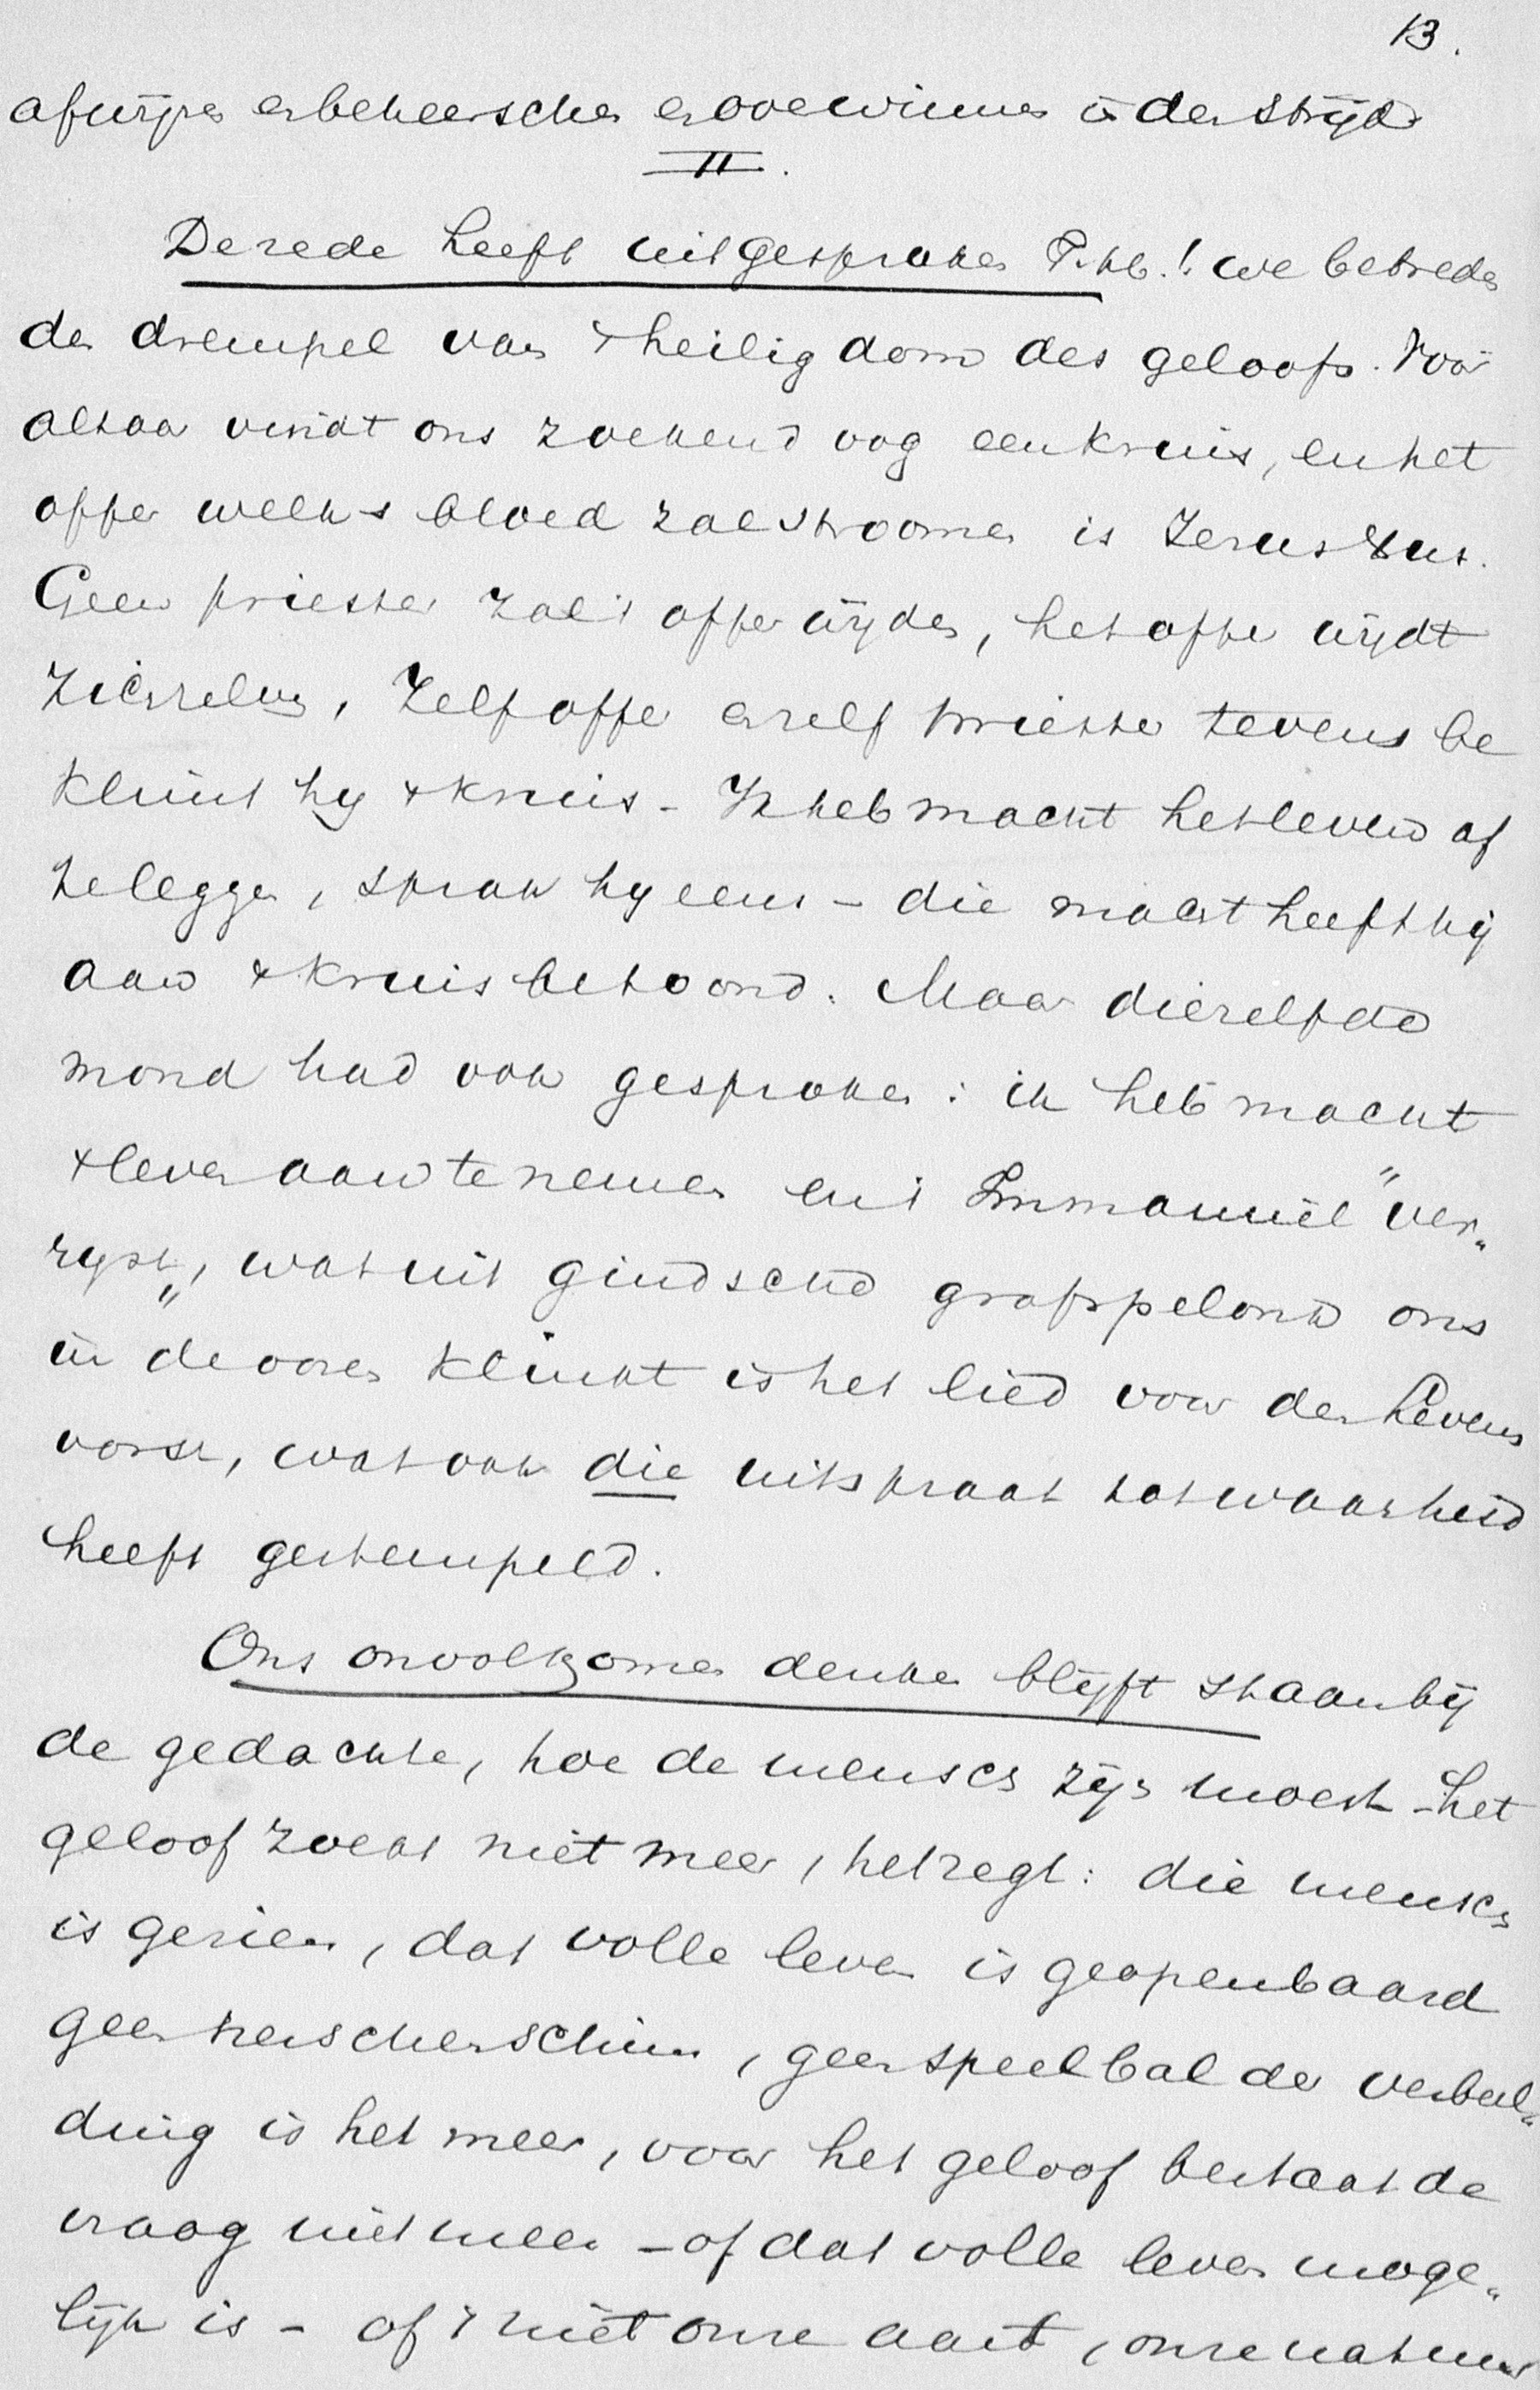 13.
afwijzen en beheerschen en overwinnen in den strijd
II.
De rede heeft uitgesproken T. hb.! we betreden
den drempel van 't heiligdom des geloofs. Voor
altaar vindt ons zoekend oog een kruis, en het
offer welks bloed zal stroomen is Jezus Xus.
Geen priester zal 't offer wijden, het offer wijdt
zichzelven, Zelf offer en zelf priester tevens be
klimt hij 't kruis - Ik heb macht het leven af
te leggen, sprak hij eens - die macht heeft hij
aan 't kruis betoond. Maar diezelfde
mond had ook gesproken: ik heb macht
't leven aan te nemen en 't Immanuël "ver-
rijst", wat uit gindsche grafspelonk ons
in de ooren klinkt is het lied voor den Levens
vorst, wat ook die uitspraak tot waarheid
heeft gestempeld.
Ons onvolkomen denken blijft staan bij
de gedachte, hoe de mensch zijn moest - het
geloof zoekt niet meer, het zegt: die mensch
is gezien, dat volle leven is geopenbaard
geen hersenschim, geen speelbal der verbeel-
ding is het meer, voor het geloof bestaat de
vraag niet meer - of dat volle leven moge-
lijk is - of 't niet onze aard, onze natuur